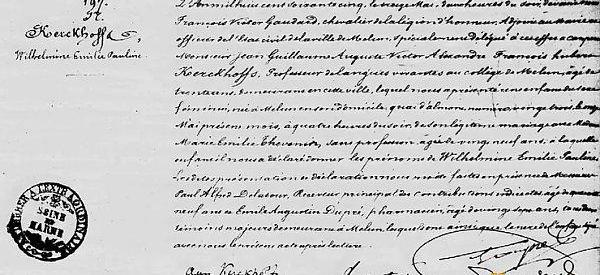 197.
Kerckhoffs,
Wilhelmine Emilie Pauline.
L'an mil huit cent soixante cinq, le treize Mai, deux heures du soir, devant nous
François Victor Gaudard, chevalier de la légion d'honneur, Adjoint au maire
officier de l'état civil de la ville de Melun, spécialement délégué à cet effet, a comparu
Monsieur Jean Guillaume Auguste Victor Alexandre François hubert
Kerckhoffs, Professeur de langues vivantes au collège de Melun, âgé de
trente ans, demeurant en cette ville, lequel nous a présenté un enfant du sexe
féminin, né à Melun en son domicile, quai d'almont, numéro vingt trois, le onze
Mai présent mois, à quatre heures du soir, de son légitime mariage avec
Marie Emilie Thevenin, sans profession, âgée de vingt neuf ans, à laquelle
enfant il nous a déclaré donner les prénoms de Wilhelmine Emilie Pauline.
Lesdites présentation et déclaration nous ont été faites en présence de Monsieur
Paul Alfred Delatour, Receveur principal des contributions indirectes, âgé de
neuf ans et Emile Augustin Dupré, pharmacien, âgé de vingt sept ans,
témoins majeurs demeurant à Melun, lesquels ont ainsi que le
avec nous le présent acte après lecture.
TIMBRE A L'EXTRAORDINAIRE
SEINE
ET
MARNE
Aug Kerckhoffs